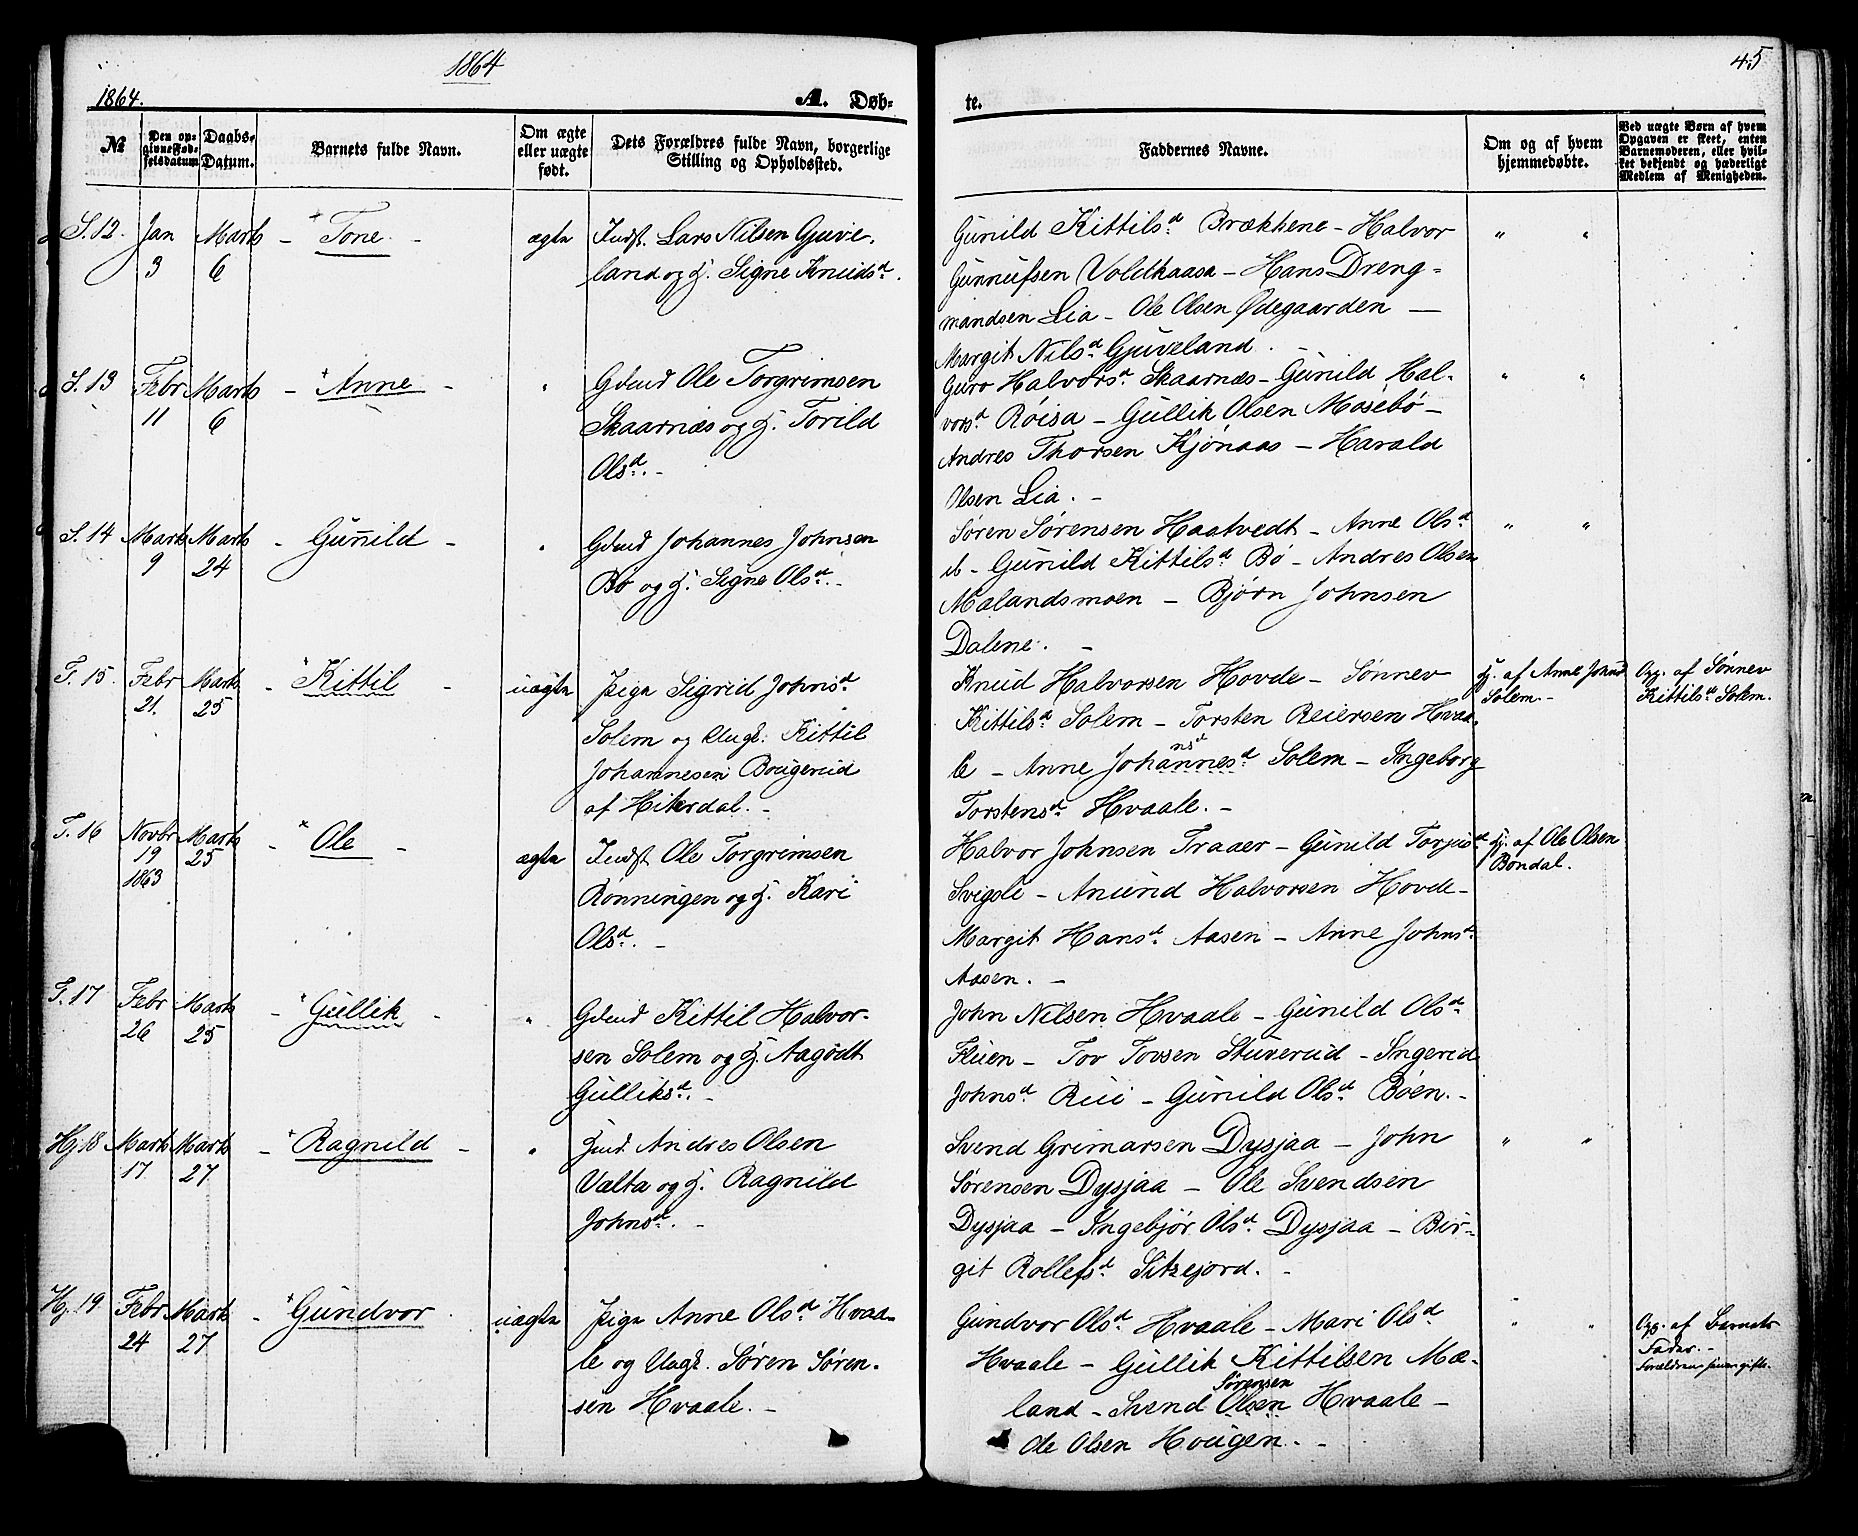 1864
45
1864.
A. Døb-
te.
№
Den op-
givne Fød-
selsdatum.
Daabs-
Datum.
Barnets fulde Navn.
Om ægte
eller uægte
født.
Dets Forældres fulde Navn, borgerlige
Stilling og Opholdssted.
Faddernes Navne.
Om og af hvem
hjemmedøbte.
Ved uægte Børn af hvem
Opgaven er skeet, enten
Barnemoderen, eller hvil-
ket bekjendt og hæderligt
Medlem af Menigheden.
S. 12. Jan 3 Marts 6 - Tone. - ægte
Indst. Lars Nilsen Gjuve-
land og H. Signe Knudsd.
Gunild Kittilsd. Brækkene - Halvor
Gunnufsen Voldkaasa - Hans Dreng-
mandsen Lia - Ole Olsen Ødegaarden -
Margit Nilsd. Gjuveland. -
" "
S. 13 Febr 11 Marts 6 - Anne - "
Gdmd Ole Torgrimsen
Skaarnæs og H. Torild
Olsd. -
Guro Halvorsd. Skaarnæs - Gunild Hal-
vorsd. Røisa - Gullik Olsen Mosebø -
Andres Thorsen Kjønaas - Harald
Olsen Lia. -
" "
S. 14 Marts 9 Marts 24 - Gunnild - "
Gdmd Johannes Johnsen
Bø og H. Signe Olsd. -
Søren Sørensen Haatvedt - Anne Olsd
ib - Gunild Kittilsd Bø - Andres Olsen
Mælandsmoen - Bjørn Johnsen
Dalene. -
" "
T. 15. Febr 21. Marts 25 - Kittil - uægte
Pige Sigrid Johnsd.
Solem og Ungk. Kittil
Johannesen Bougerud
af Hiterdal. -
Knud Halvorsen Hovde - Sønnev
Kittilsd Solem - Torsten Reiersen Hvaa-
le - Anne Johannesd. Solem - Ingeborg
nsd
Torstensd. Hvaale. -
Hj. af Anne Johnsd
Solem. -
Opg. af Sønnev
Kittilsd. Solem.
T. 16 Novbr 19 1863 Marts 25 - Ole - ægte
Indst Ole Torgrimsen
Rønningen og H. Kari
Olsd. -
Halvor Johnsen Traaer - Gunild Torjusd
Svigsle - Anund Halvorsen Hovde -
Margit Hansd. Aasen - Anne Johnsd.
Aasen. -
Hj. af Ole Olsen
Bøndal.
T. 17 Febr 26 Marts 25 - Gullik - "
Gdmd Kittil Halvor-
sen Solem og H. Aagodt
Gulliksd. -
John Nilsen Hvaale - Gunild Olsd.
Kleien - Tov Tovsen Stuverud - Ingerid
Johnsd Rui - Gunild Olsd. Bøen. -
Hj. 18 Marts 17 Marts 27 - Ragnild - "
Andres Olsen
Valta og H. Ragnild
Johnsd. -
Svend Grimarsen Dysjaa - John
Sørensen Dysjaa - Ole Svendsen
Dysjaa - Ingebjør Olsd. Dysjaa - Bir-
git Rollefsd. Sitzejord. -
" "
Hj. 19 Febr 24 Marts 27 - Gundvor uægte
Pige Anne Olsd Hvaa-
le og Ungk. Søren Søren-
sen Hvaale. -
Gundvor Olsd. Hvaale - Mari Olsd
Hvaale - Gullik Kittilsen Mæ-
Sørensen
land - Svend Olsen Hvaale -
Ole Olsen Hougen. -
" "
Opg. af Barnets
Fader. -